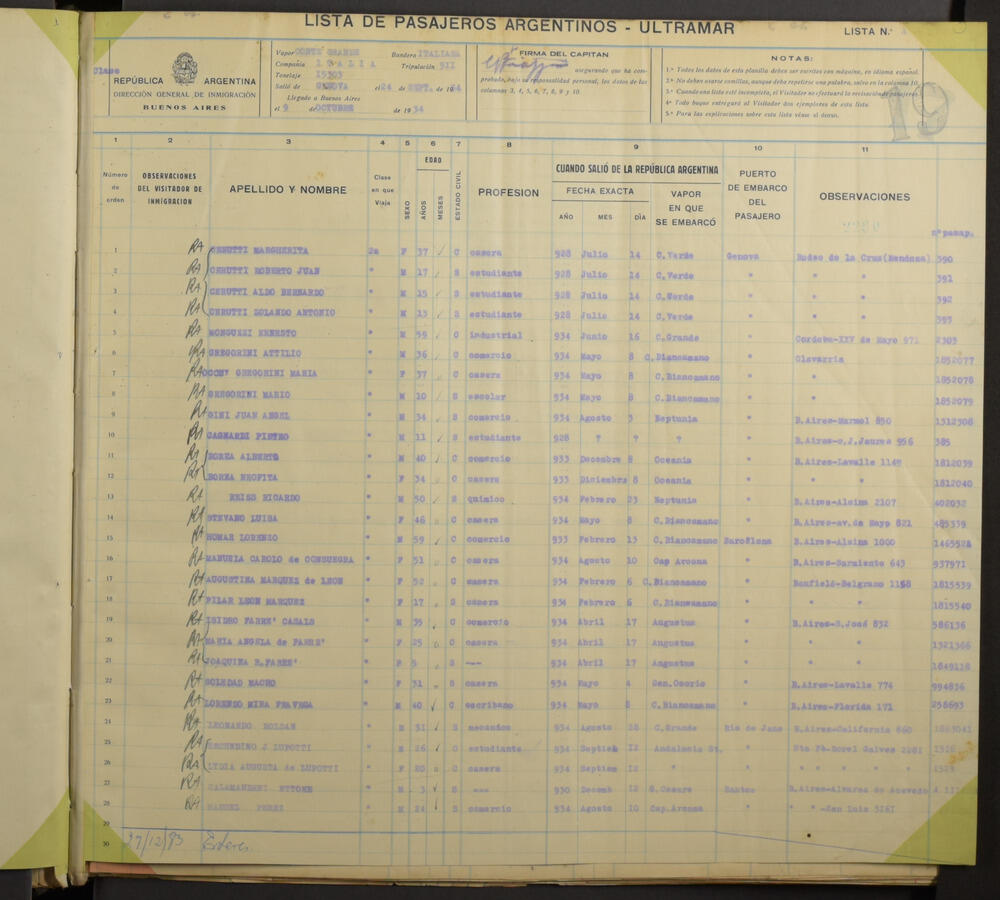 LISTA DE PASAJEROS ARGENTINOS - ULTRAMAR
LISTA N.°
Clase
REPÚBLICA ARGENTINA
DIRECCIÓN GENERAL DE INMIGRACIÓN
BUENOS AIRES
Vapor CONTE GRANDE Bandera ITALIANA
Compañia ITALIA Tripulación 511
Tonelaje
Salió de GENOVA el 24 de SEPT. de 1934
Llegado a Buenos Aires
el 9 de OCTUBRE de 1934
FIRMA DEL CAPITAN
asegurando que ha comprobado, bajo su responsabilidad personal, los datos de las columnas 3, 4, 5, 6, 7, 8, 9 y 10.
NOTAS:
1.ª Todos los datos de esta planilla deben ser escritos con máquina, en idioma español.
2.ª No deben usarse comillas, aunque deba repetirse una palabra, salvo en la columna 10.
3.ª Cuando una lista esté incompleta, el Visitador no efectuará la revisación de pasajeros.
4.ª Todo buque entregará al Visitador dos ejemplares de esta lista
5.ª Para las explicaciones sobre esta lista véase al dorso.
19
1 2 3 4 5 6 7 8 9 10 11
Número de orden
OBSERVACIONES DEL VISITADOR DE INMIGRACIÓN
APELLIDO Y NOMBRE
Clase en que Viaja
SEXO
EDAD
AÑOS
MESES
ESTADO CIVIL
PROFESION
CUANDO SALIÓ DE LA REPÚBLICA ARGENTINA
FECHA EXACTA
AÑO MES DÍA
VAPOR EN QUE SE EMBARCÓ
PUERTO DE EMBARCO DEL PASAJERO
OBSERVACIONES
nºpasap.
1 RA CERUTTI MARGHERITA 2a F 37 C casera 928 Julio 14 C.Verde Genova Rodeo de la Cruz(Mendoza) 390
2 RA CERUTTI ROBERTO JUAN " M 17 S estudiante 928 Julio 14 C.Verde " " " 391
3 RA CERUTTI ALDO BERNARDO " M 15 S estudiante 928 Julio 14 C.Verde " " " 392
4 RA CERUTTI ROLANDO ANTONIO " M 13 S estudiante 928 Julio 14 C.Verde " " " 393
5 RA MONGUZZI ERNESTO " M 59 C industrial 934 Junio 16 C.Grande " Cordoba-XXV de Mayo 971 2303
6 RA GREGORINI ATTILIO " M 36 C comercio 934 Mayo 8 C.Biancamano " Olavarria 1852077
7 RA GREGORINI MARIA " F 37 C casera 934 Mayo 8 C.Biancamano " " 1852078
8 RA GREGORINI MARIO " M 10 S escolar 934 Mayo 8 C.Biancamano " " 1852079
9 RA GINI JUAN ANGEL " M 34 S comercio 934 Agosto 3 Neptunia " B.Aires-Marmol 850 1312308
10 RA CAGNARDI PIETRO " M 11 S estudiante 928 ? ? ? " B.Aires-c.J.Jaures 956 385
11 RA BORZA ALBERTO " M 40 C comercio 933 Decembre 8 Oceania " B.Aires-Lavalle 1149 1812039
12 RA BORZA NEOFITA " F 34 C casera 933 Diciembre 8 Oceania " 1812040
13 RA REISS RICARDO " M 50 S quimico 934 Febrero 23 Neptunia " B.Aires-Alsina 2107 402032
14 RA STEVANO LUISA " F 46 C casera 934 Mayo 8 C.Biancamano " B.Aires-av.de Mayo 821 485339
15 RA HOMAR LORENZO " M 59 C comercio 933 Febrero 13 C.Biancamano Barcelona B.Aires-Alsina 1000
16 RA MANUELA CAROLO de CONSUEGRA " F 51 C casera 934 Agosto 10 Cap Arcona " B.Aires-Sarmiento 643 937971
17 RA AUGUSTINA MARQUEZ de LEON " F 52 C casera 934 Febrero 6 C.Biancamano " Banfield-Belgrano 1158 1815539
18 RA PILAR LEON MARQUEZ " F 17 S casera 934 Febrero 6 C.Biancamano " " " 1815540
19 RA ISIDRO FABRE' CASALS " M 35 C comercio 934 Abril 17 Augustus " B.Aires-S.José 832 586136
20 RA MARIA ANGELA de FABRE' " F 25 C casera 934 Abril 17 Augustus " " " 1321366
21 RA JOAQUINA R.FABRE' " F 5 S --- 934 Abril 17 Augustus " " " 1849118
22 RA SOLEDAD MACHO " F 31 S casera 934 Mayo 4 Gen.Osorio " B.Aires-Lavalle 774 994836
23 RA LORENZO MIRA FRAVEGA " M 40 C escribano 934 Mayo 8 C.Biancamano " B.Aires-Florida 171 258693
24 RA LEONARDO ROLDAN " M 31 S mecanico 934 Agosto C.Grande Rio de Jane B.Aires-California 860
25 RA J LUPOTTI " M 26 C estudiante 934 Septiem 12 Andalucia St. " 2281
26 RA LYDIA AUGUSTA de LUPOTTI " F 20 C casera 934 Septiem 12 " " " " " "
27 RA ETTORE " M 3 S --- 930 Decemb 12 Santos B.Aires-Alvarez de Acevedo
28 RA MANUEL PEREZ " M 24 S comercio 934 Agosto 10 Cap.Arcona " " -San Luis 3161
29
30
27/12/93